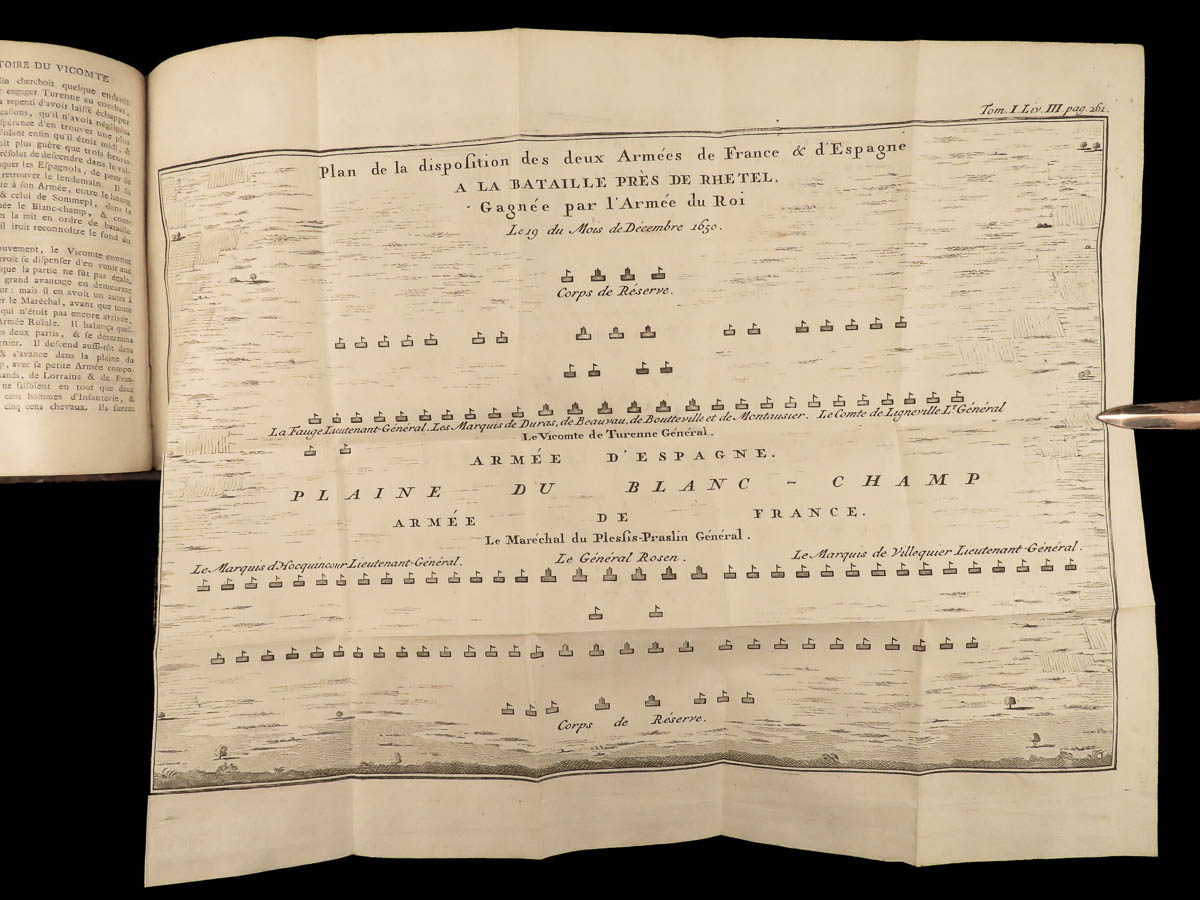 TOIRE DU VICOMTE
lin cherchoit quelque endroit
engager Turenne au combat,
repenti d'avoir laissé échapper
casions, qu'il n'avoit négligées
spérance d'en trouver une plus
Volant enfin qu'il étoit midi, &
oit plus guère que trois heures
résolut de descendre dans le val-
quer les Espagnols, de peur de
retrouver le lendemain. Il fit
à son Armée, entre le bourg
& celui de Sommepi, dans la
mée le Blanc-champ, & com-
la mit en ordre de bataille
il iroit reconnoître le fond du
ouvement, le Vicomte connut
rroit se dispenser d'en venir aux
que la partie ne fût pas égale,
grand avantage en demeurant
ur: mais il en avoit un autre à
er le Maréchal, avant que toute
qui n'étoit pas encore arrivée,
Armée Roïale. Il balança quel-
es deux partis, & se détermina
rnier. Il descend aussi-tôt dans
& s'avance dans la plaine du
p, avec sa petite Armée compo-
ands, de Lorrains & de Fran-
ne faisoient en tout que deux
cens hommes d'Infanterie, &
cinq cens chevaux. Ils furent
Tom. I. Liv. III. pag. 261.
Plan de la disposition des deux Armées de France & d'Espagne
A LA BATAILLE PRÈS DE RHETEL,
Gagnée par l'Armée du Roi
Le 19 du Mois de Décembre 1650.
Corps de Réserve.
La Fauge Lieutenant-Général. Les Marquis de Duras, de Beauvau, de Boutteville et de Montausier. Le Comte de Ligneville Lt. Général
Le Vicomte de Turenne Général.
ARMÉE D'ESPAGNE.
PLAINE DU BLANC-CHAMP
ARMÉE DE FRANCE.
Le Maréchal du Plessis-Praslin Général.
Le Marquis d'Hocquincour Lieutenant-Général. Le Général Rosen. Le Marquis de Villequier Lieutenant-Général.
Corps de Réserve.